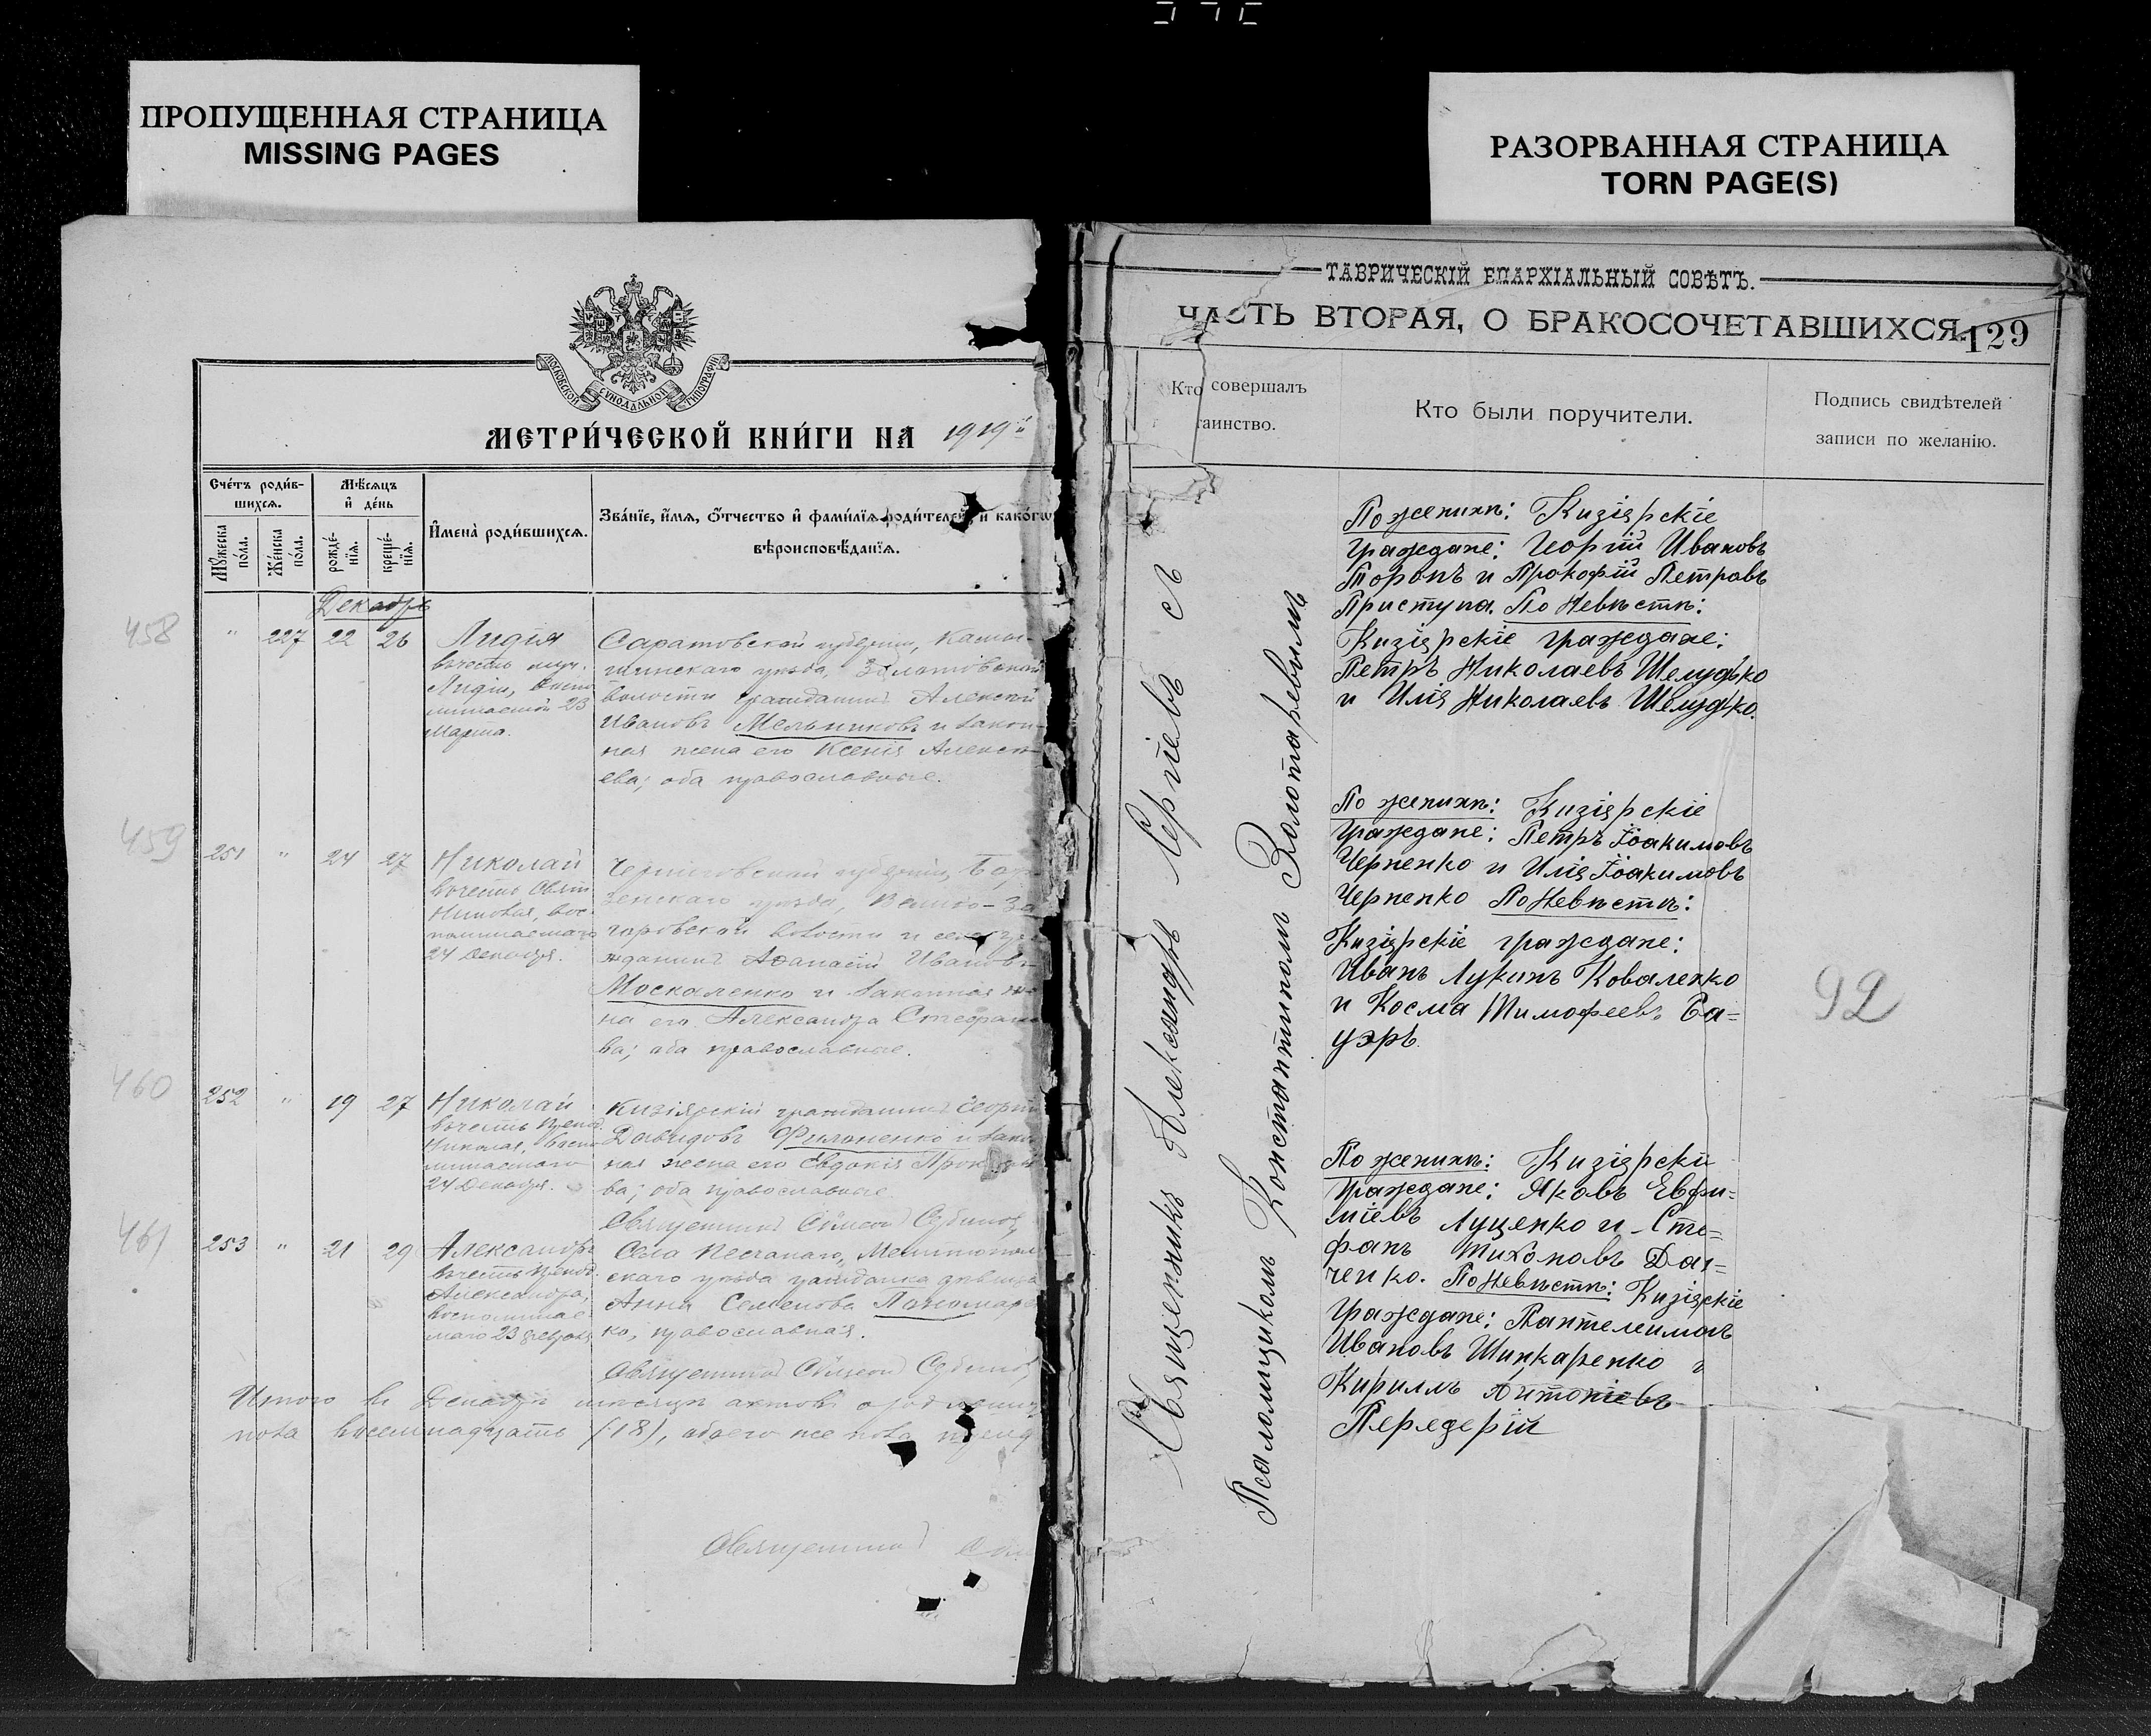 ПРОПУЩЕННАЯ СТРАНИЦА
MISSING PAGES
РАЗОРВАННАЯ СТРАНИЦА
TORN PAGE(S)
МОСКОВСКОЙ СѴНОДАЛЬНОЙ ТИПОГРАФІИ
МЕТРИ́ЧЕСКОЙ КНИ́ГИ НА 1919й
Сче́тъ роди́в-
шихсѧ.
Мѣ́сѧцъ
и҆ де́нь
И҆мена̀ роди́вшихсѧ.
Зва́нїе, и҆́мѧ, ѻ҆́тчество и҆ фами́лїѧ роди́телей, и како́гѡ
вѣроисповѣ́данїѧ.
Мꙋ́жеска
по́ла.
Же́нска
по́ла.
рожде́-
нїѧ.
креще́-
нїѧ.
Декабрь
458
" 227 22 26 Лидія
въ честь муч.
Лидіи,
23
Марта.
Саратовской губерніи, Камы-
шинскаго уѣзда, Золотовской
волости гражданинъ Алексѣй
Ивановъ Мельниковъ и закон-
ная жена его Ксенія Алексѣ-
ева; оба православные.
459
251 " 24 27 Николай
въ честь Свят.
Николая, вос-
поминаемаго
24 Декабря.
Черниговской губерніи, Бор-
зенскаго уѣзда, Велико-За-
горовской волости и села
жданинъ Аѳанасій Ивановъ
Москаленко и законная же-
на его Александра Стефано-
ва; оба православные.
460
252 " 19 27 Николай
въ честь препод.
Николая, воспо-
минаемаго
24 Декабря.
Кизіярскій гражданинъ Георгій
Давидовъ Филоненко и закон-
ная жена его Евдокія
ва; оба православные
Священникъ Сѵмеонъ
461
253 " 21 29 Александръ
въ честь препод.
Александра,
воспоминае-
маго 23 февраля
Села Песчанаго, Мелитополь-
скаго уѣзда гражданка дѣвица
Анна Семенова Пономарен-
ко, православная.
Священникъ Сѵмеонъ
Итого въ Декабрѣ мѣсяцѣ актовъ о рожденіи
пола восемнадцать (18), обоего же пола
Священникъ
ТАВРИЧЕСКІЙ ЕПАРХІАЛЬНЫЙ СОВѢТЪ.
ЧАСТЬ ВТОРАЯ, О БРАКОСОЧЕТАВШИХСЯ.
129
Кто совершалъ
таинство.
Кто были поручители.
Подпись свидѣтелей
записи по желанію.
Священникъ Александръ Сергіевъ съ
Псаломщикомъ Константиномъ Золотаревымъ
По женихѣ: Кизіярскіе
граждане: Георгій Ивановъ
Торопъ и Прокофій Петровъ
Приступа. По невѣстѣ:
Кизіярскіе граждане:
Петръ Николаевъ Шелудько
и Илія Николаевъ Шелудько.
По женихѣ: Кизіярскіе
граждане: Петръ Іоакимовъ
Черненко и Илія Іоакимовъ
Черненко По невѣстѣ:
Кизіярскіе граждане:
Иванъ Лукинъ Коваленко
и Косма Тимофеевъ Ба=
уэръ.
92
По женихѣ: Кизіярскіе
граждане: Яковъ Евфи=
міевъ Луценко и Сте=
фанъ Тихоновъ Дат=
ченко. По невѣстѣ: Кизіярскіе
граждане: Пантелеимонъ
Ивановъ Шинкаренко и
Кириллъ Антоніевъ
Передерій